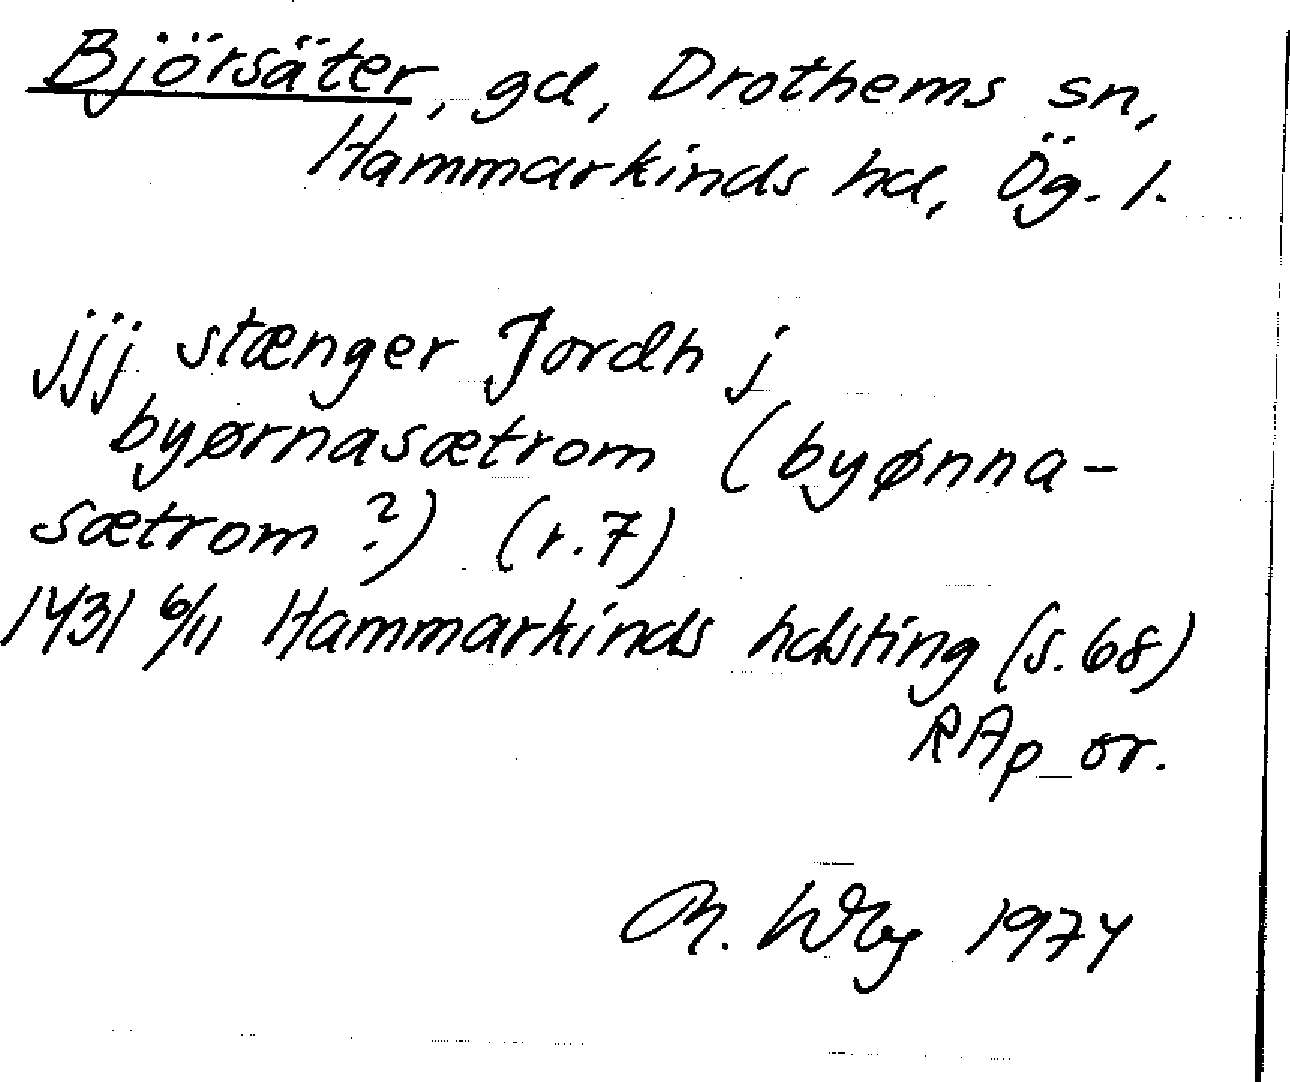 Björsäter, gd, Drothems sn,
Hammarkinds hd, Ög. l.
jjj stænger Jordh j
byørnasætrom (byønna-
sætrom ?) (r.7)
1431 6/11 Hammarkinds hdsting (s.68)
RAp or.
M. 1974